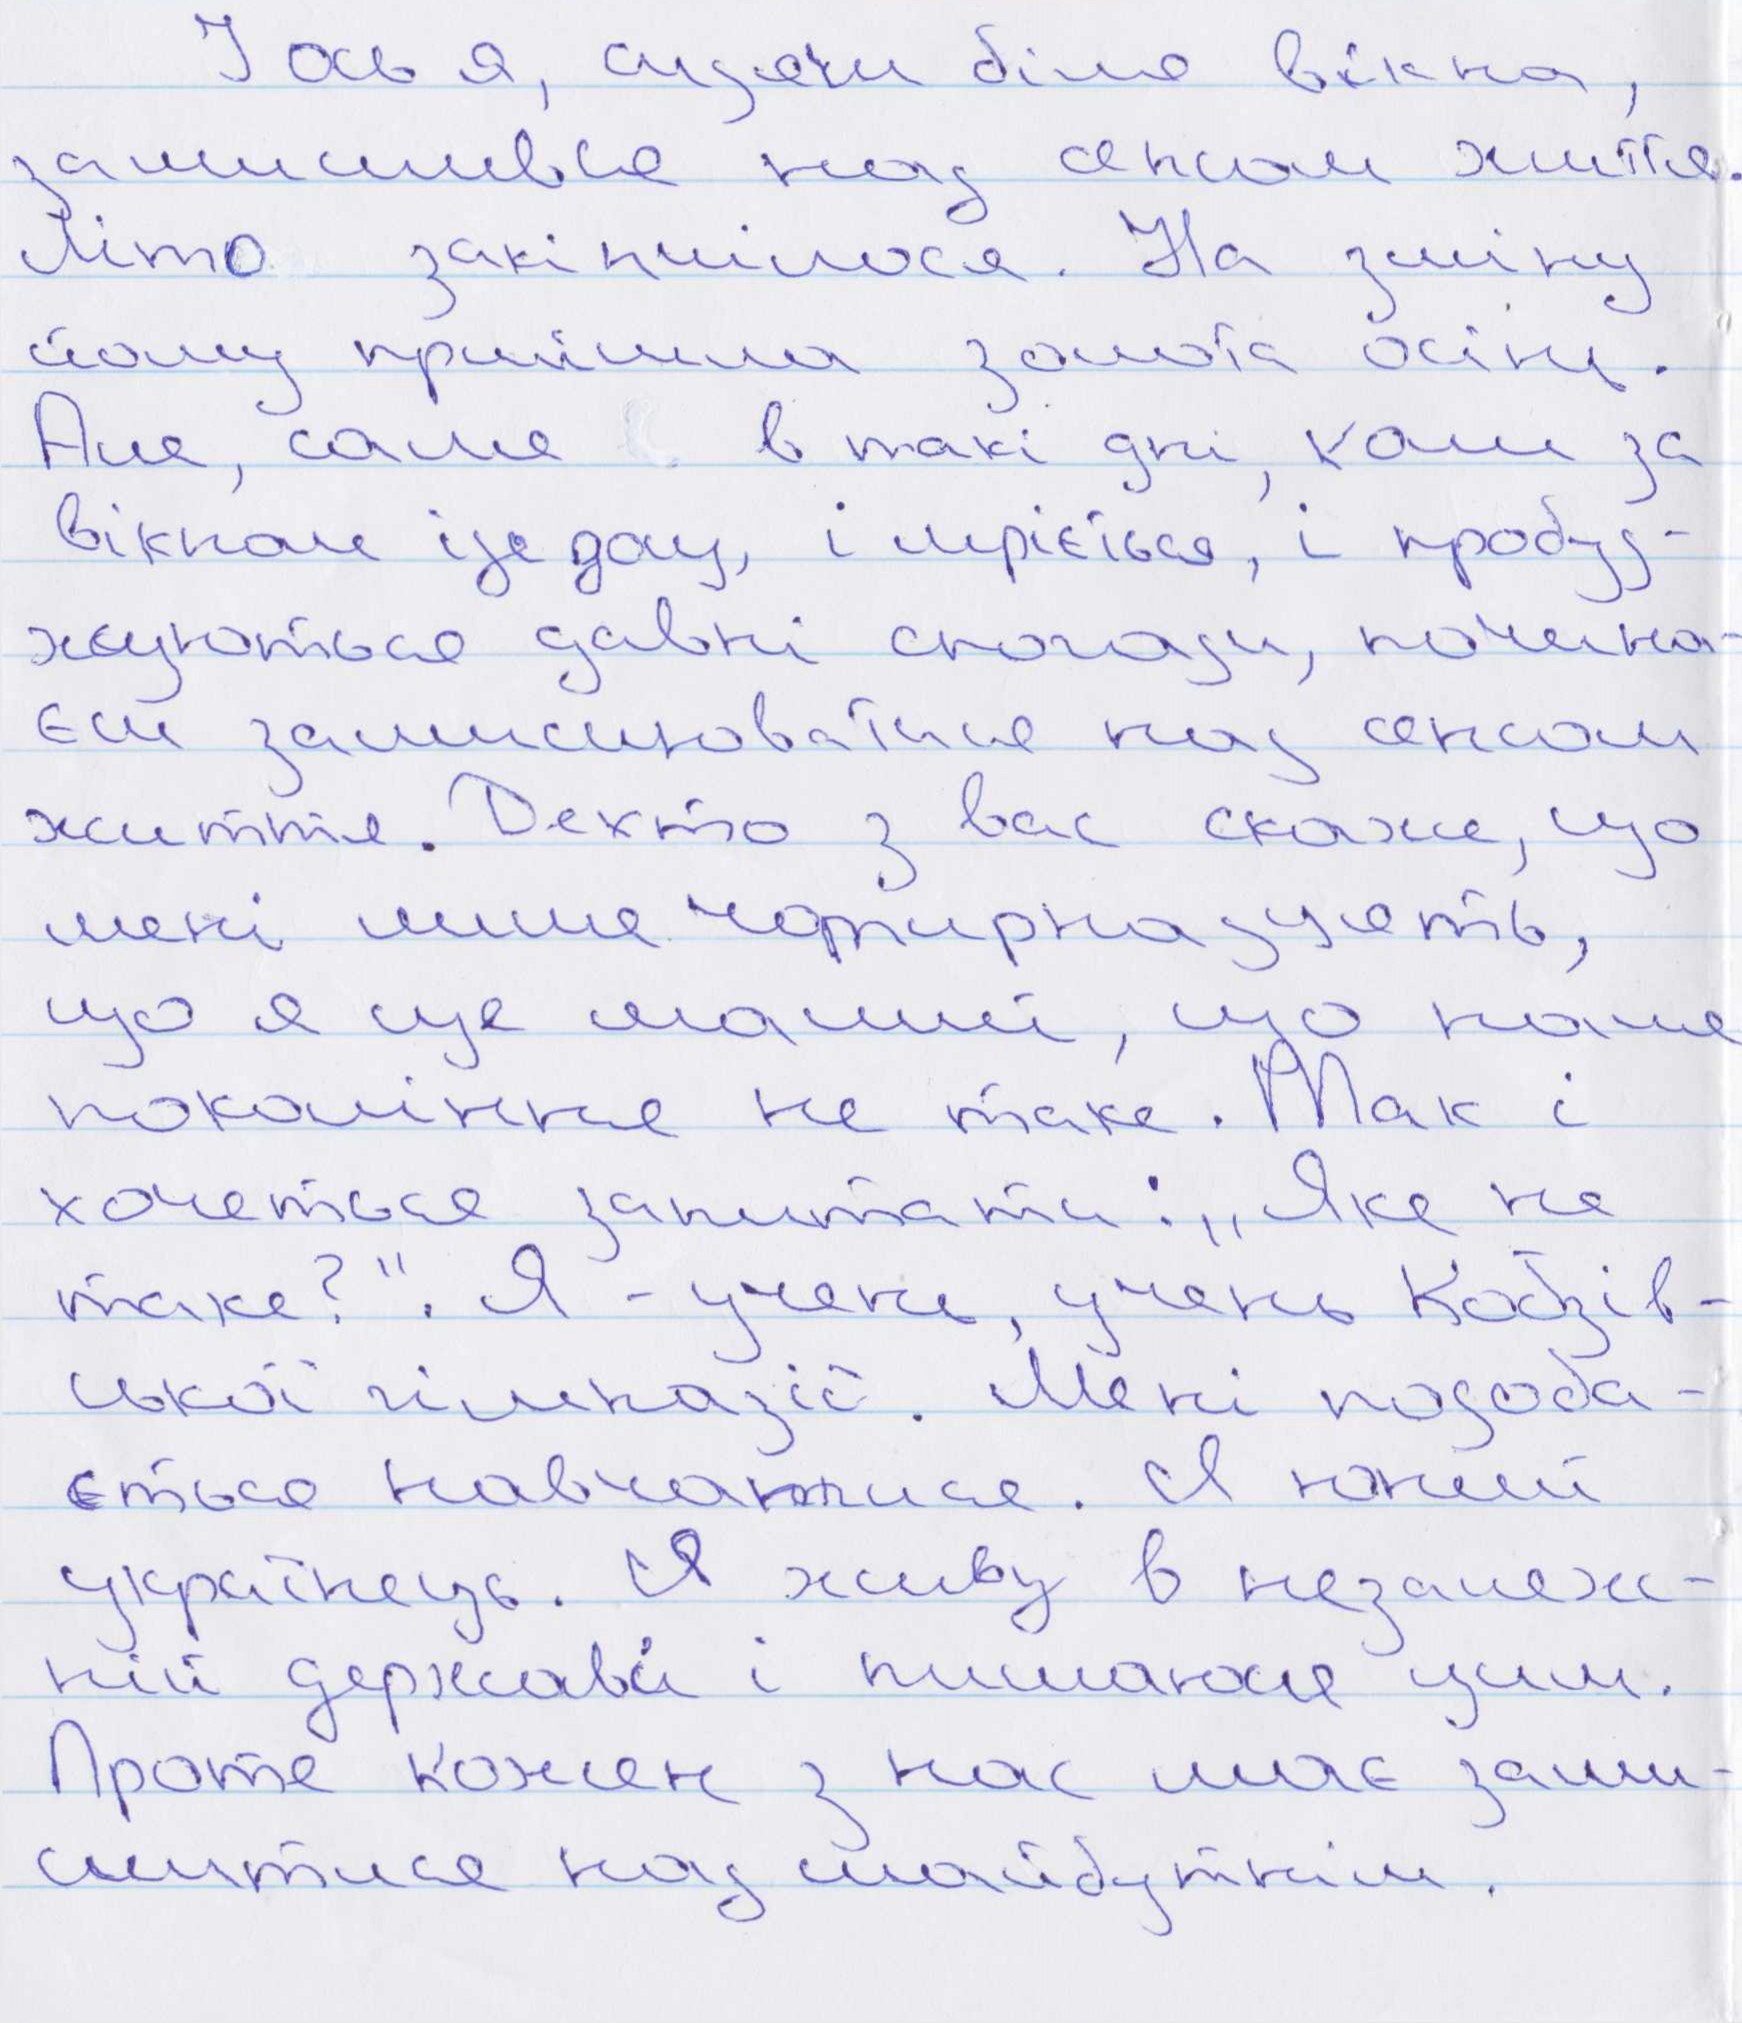 І ось я, сидячи біля вікна,
замислився над сенсом життя.
Літо закінчилося. На зміну
йому прийшла золота осінь.
Але, саме в такі дні, коли за
вікном іде дощ, і мріється, і пробуд-
жуються давні спогади, почина-
єш замислюватися над сенсом
життя. Дехто з вас скаже, що
мені лише чотирнадцять,
що я ще малий, що наше
покоління не таке. Так і
хочеться запитати: „Яке не
таке?". Я - учень, учень Кобзів-
ської гімназії. Мені подоба-
ється навчатися. Я юний
українець. Я живу в незалеж-
ній державі і пишаюся цим.
Проте кожен з нас має зами-
слитися над майбутнім.